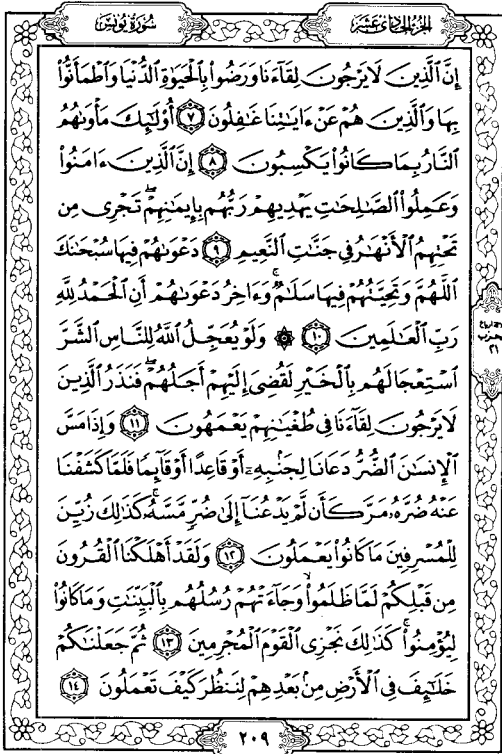 الجزء الحادى عشر
سورة يونس
إِنَّ ٱلَّذِينَ لَا يَرْجُونَ لِقَآءَنَا وَرَضُوا۟ بِٱلْحَيَوٰةِ ٱلدُّنْيَا وَٱطْمَأَنُّوا۟
بِهَا وَٱلَّذِينَ هُمْ عَنْ ءَايَٰتِنَا غَٰفِلُونَ ٧ أُو۟لَٰٓئِكَ مَأْوَىٰهُمُ
ٱلنَّارُ بِمَا كَانُوا۟ يَكْسِبُونَ ٨ إِنَّ ٱلَّذِينَ ءَامَنُوا۟
وَعَمِلُوا۟ ٱلصَّٰلِحَٰتِ يَهْدِيهِمْ رَبُّهُم بِإِيمَٰنِهِمْ ۖ تَجْرِى مِن
تَحْتِهِمُ ٱلْأَنْهَٰرُ فِى جَنَّٰتِ ٱلنَّعِيمِ ٩ دَعْوَىٰهُمْ فِيهَا سُبْحَٰنَكَ
ٱللَّهُمَّ وَتَحِيَّتُهُمْ فِيهَا سَلَٰمٌ ۚ وَءَاخِرُ دَعْوَىٰهُمْ أَنِ ٱلْحَمْدُ لِلَّهِ
رَبِّ ٱلْعَٰلَمِينَ ١٠ ۞ وَلَوْ يُعَجِّلُ ٱللَّهُ لِلنَّاسِ ٱلشَّرَّ
ٱسْتِعْجَالَهُم بِٱلْخَيْرِ لَقُضِىَ إِلَيْهِمْ أَجَلُهُمْ ۖ فَنَذَرُ ٱلَّذِينَ
لَا يَرْجُونَ لِقَآءَنَا فِى طُغْيَٰنِهِمْ يَعْمَهُونَ ١١ وَإِذَا مَسَّ
ٱلْإِنسَٰنَ ٱلضُّرُّ دَعَانَا لِجَنۢبِهِۦٓ أَوْ قَاعِدًا أَوْ قَآئِمًا فَلَمَّا كَشَفْنَا
عَنْهُ ضُرَّهُۥ مَرَّ كَأَن لَّمْ يَدْعُنَآ إِلَىٰ ضُرٍّ مَّسَّهُۥ ۚ كَذَٰلِكَ زُيِّنَ
لِلْمُسْرِفِينَ مَا كَانُوا۟ يَعْمَلُونَ ١٢ وَلَقَدْ أَهْلَكْنَا ٱلْقُرُونَ
مِن قَبْلِكُمْ لَمَّا ظَلَمُوا۟ ۙ وَجَآءَتْهُمْ رُسُلُهُم بِٱلْبَيِّنَٰتِ وَمَا كَانُوا۟
لِيُؤْمِنُوا۟ ۚ كَذَٰلِكَ نَجْزِى ٱلْقَوْمَ ٱلْمُجْرِمِينَ ١٣ ثُمَّ جَعَلْنَٰكُمْ
خَلَٰٓئِفَ فِى ٱلْأَرْضِ مِنۢ بَعْدِهِمْ لِنَنظُرَ كَيْفَ تَعْمَلُونَ ١٤
٢٠٩